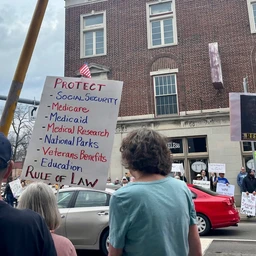 PROTECT
- SOCIAL SECURITY
- MEDICARE
- MEDICAID
- MEDICAL RESEARCH
- NATIONAL PARKS
- VETERANS BENEFITS
EDUCATION
RULE OF LAW